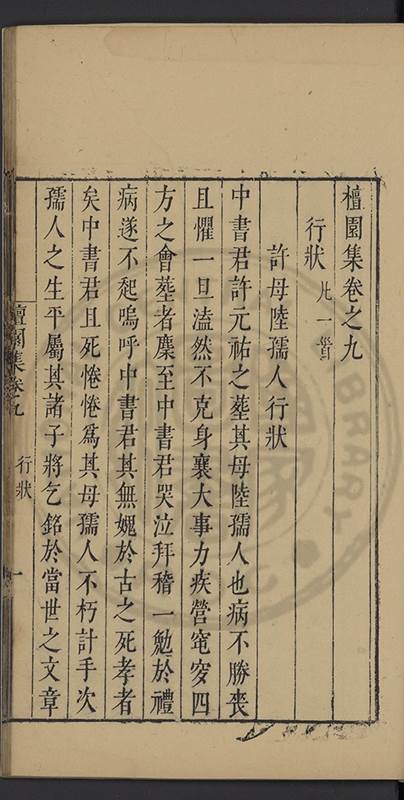 檀園集卷之九
行狀 凡一首
許母陸孺人行狀
中書君許元祐之塟其母陸孺人也病不勝喪
且懼一旦溘然不克身襄大事力疾營窀穸四
方之會塟者麇至中書君哭泣拜稽一勉於禮
病遂不起嗚呼中書君其無媿於古之死孝者
矣中書君且死惓惓為其母孺人不朽計手次
孺人之生平屬其諸子將乞銘於當世之文章
檀園集卷九
行狀
一